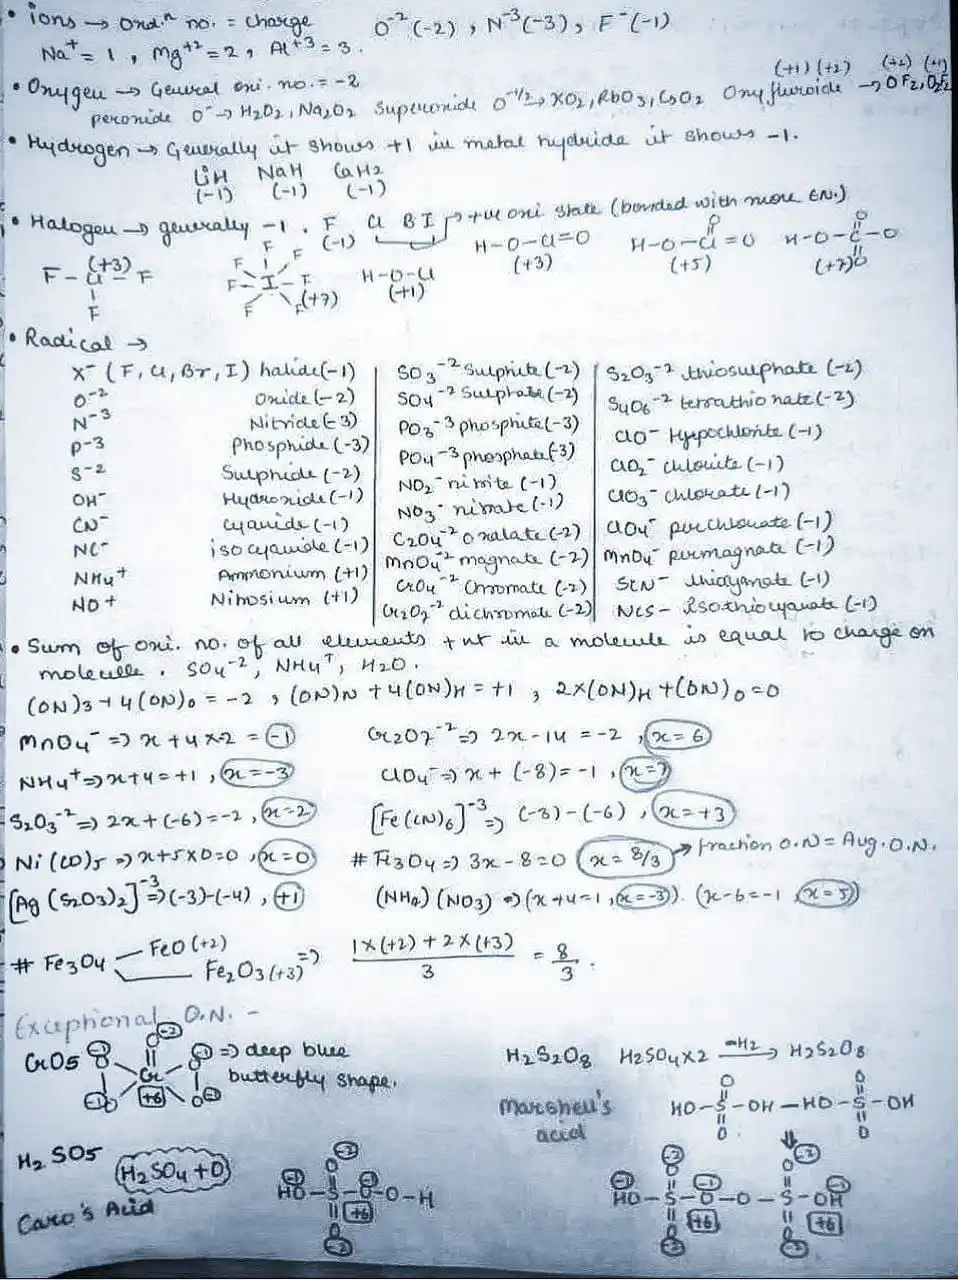 • ions → Oxdⁿ no. = charge O⁻²(-2), N⁻³(-3), F⁻(-1)
Na⁺ = 1, Mg⁺² = 2, Al⁺³ = 3.
• Oxygen → General oxi. no. = -2
peroxide O⁻ → H₂O₂, Na₂O₂ Superoxide O⁻¹/², KO₂, RbO₃, CsO₂ Oxyfluroide → OF₂, O₂F₂
(+1) (+2) (+2) (+1)
• Hydrogen → Generally it shows +1 in metal hydride it shows -1.
LiH NaH CaH₂
(-1) (-1) (-1)
• Halogen → generally -1. F Cl B I → +ve oxi state (bonded with more EN.)
(-1)
H-O-Cl=O H-O-Cl=O H-O-Cl-O
(+3) (+5) (+7)
F-Cl-F (+3) F I F (+7) H-O-Cl (+1)
• Radical →
X⁻ (F, Cl, Br, I) halide (-1) SO₃⁻² Sulphite (-2) S₂O₃⁻² thiosulphate (-2)
O⁻² Oxide (-2) SO₄⁻² Sulphate (-2) S₄O₆⁻² tetrathionate (-2)
N⁻³ Nitride (-3) PO₃⁻³ phosphite (-3) ClO⁻ Hypochlorite (-1)
P⁻³ Phosphide (-3) PO₄⁻³ phosphate (-3) ClO₂⁻ chlorite (-1)
S⁻² Sulphide (-2) NO₂⁻ nitrite (-1) ClO₃⁻ chlorate (-1)
OH⁻ Hydroxide (-1) NO₃⁻ nitrate (-1) ClO₄⁻ perchlorate (-1)
CN⁻ Cyanide (-1) C₂O₄⁻² oxalate (-2) MnO₄⁻ permagnate (-1)
NC⁻ isocyanide (-1) MnO₄⁻² magnate (-2) SCN⁻ thiocyanate (-1)
NH₄⁺ Ammonium (+1) CrO₄⁻² Chromate (-2) NCS- Isothiocyanate (-1)
NO⁺ Nitrosium (+1) Cr₂O₇⁻² dichromate (-2)
• Sum of oxi. no. of all elements in a molecule is equal to charge on
molecule. SO₄⁻², NH₄⁺, H₂O.
(ON)3 + 4(ON)₀ = -2, (ON)N + 4(ON)H = +1, 2×(ON)H + (ON)₀ = 0
MnO₄⁻ ⇒ x + 4×2 = -1 Cr₂O₇⁻² ⇒ 2x - 14 = -2, x = 6
NH₄⁺ ⇒ x + 4 = +1, x = -3 ClO₄⁻ ⇒ x + (-8) = -1, x = 7
S₂O₃⁻² ⇒ 2x + (-6) = -2, x = 2 [Fe(CN)₆]⁻³ ⇒ (-3) - (-6), x = +3
Ni(CO)₅ ⇒ x + 5×0 = 0, x = 0 # Fe₃O₄ ⇒ 3x - 8 = 0 x = 8/3 → fraction O.N = Avg. O.N.
[Ag(S₂O₃)₂]⁻³ ⇒ (-3) - (-4), +1 (NH₄)(NO₃) ⇒ (x + 4 = 1, x = -3). (x - 6 = -1, x = 5)
# Fe₃O₄ FeO (+2) Fe₂O₃ (+3) ⇒ 1×(+2) + 2×(+3) / 3 = 8/3.
Exceptional O.N. -
CrO₅ O Cr +6 ⇒ deep blue
butterfly shape.
H₂S₂O₈ H₂SO₄×2 -H₂→ H₂S₂O₈
Marshell's
acid
HO-S-OH - HO-S-OH
H₂SO₅ H₂SO₄ + O
Caro's Acid
HO-S-O-O-H +6
HO-S-O-O-S-OH +6 +6